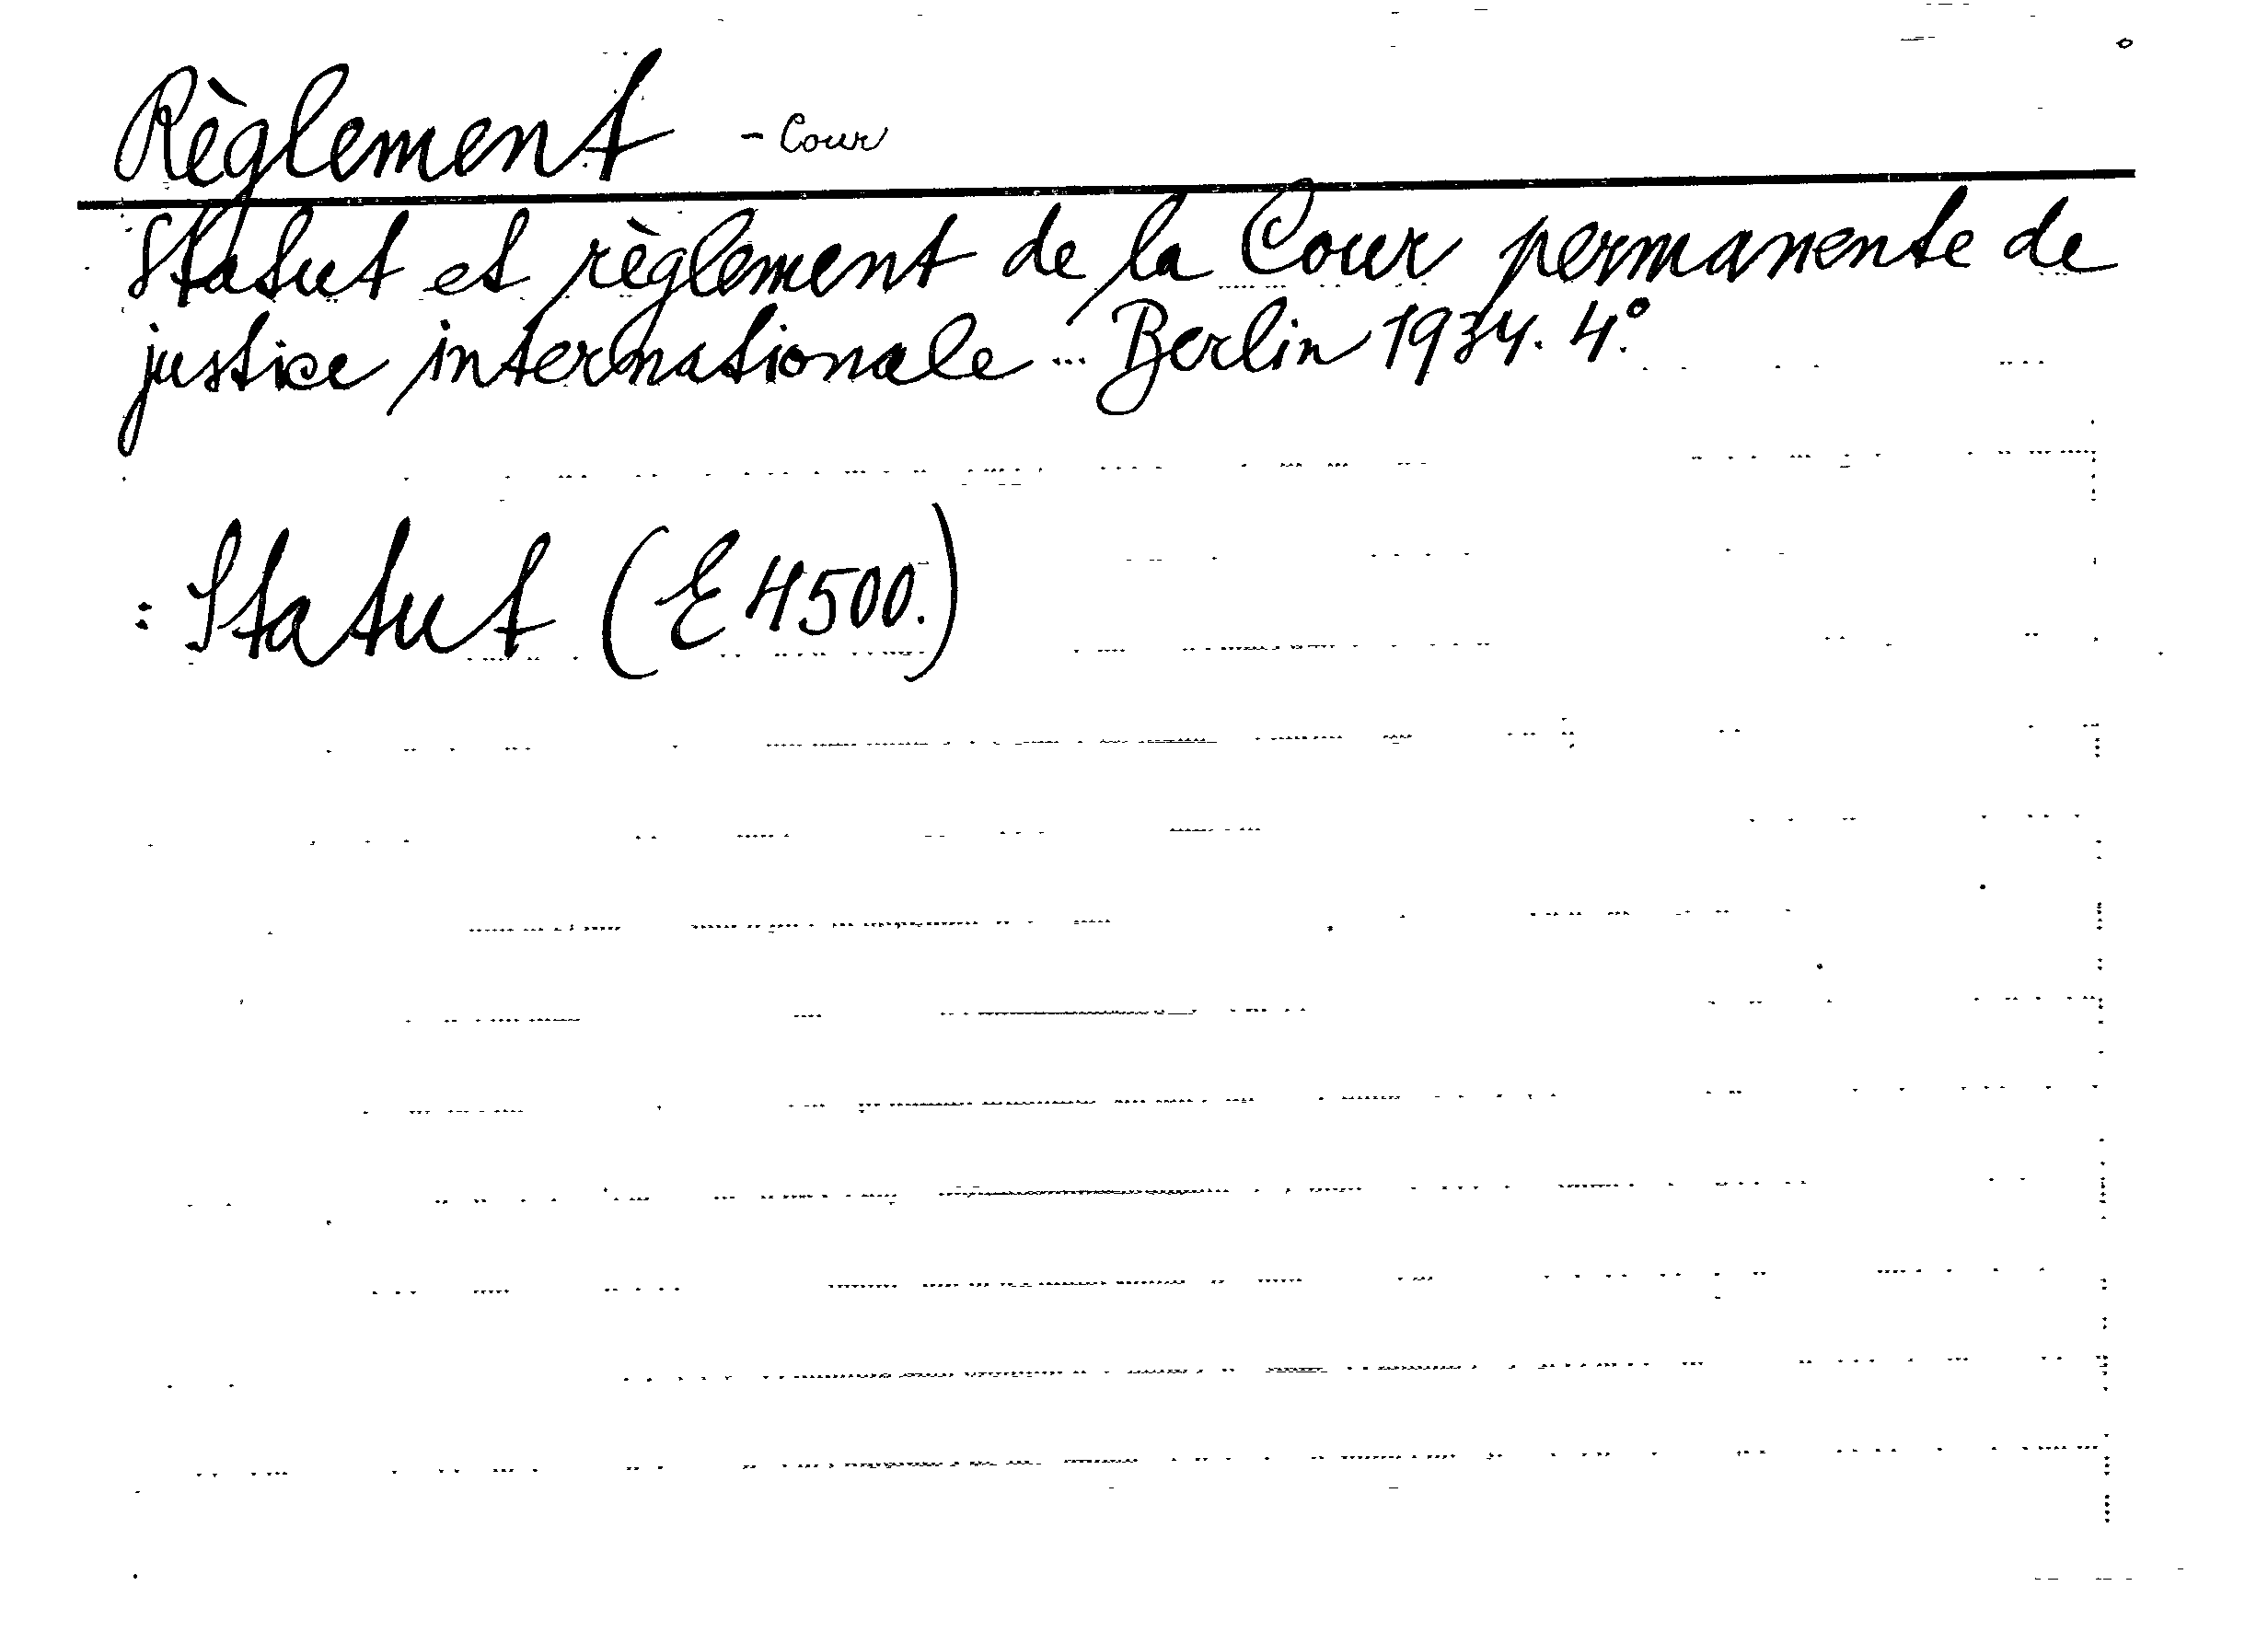 Règlement - Cour
Statut et règlement de la Cour permanente de
justice internationale ... Berlin 1934. 4°.
: Statut (E 4500.)